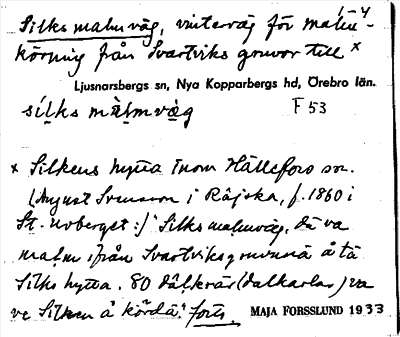 Silksmalmväg, vinterväg för malm- 1-4
körning från Svartviks gruvor till x
Ljusnarsbergs sn, Nya Kopparbergs hd, Örebro län.
silks màlmvæg F 53
x Silkens hytta inom Hällefors sn.
(August Svensson i Råjska, f. 1860 i
St. Uvberget:/ "Silksmalmväg, dä va
malm ifrån Svartviksgruvuna å tä
Silks hytta. 80 dálkrár (dalkarlar) va
ve Silken å kördä." forts.
MAJA FORSSLUND 1933